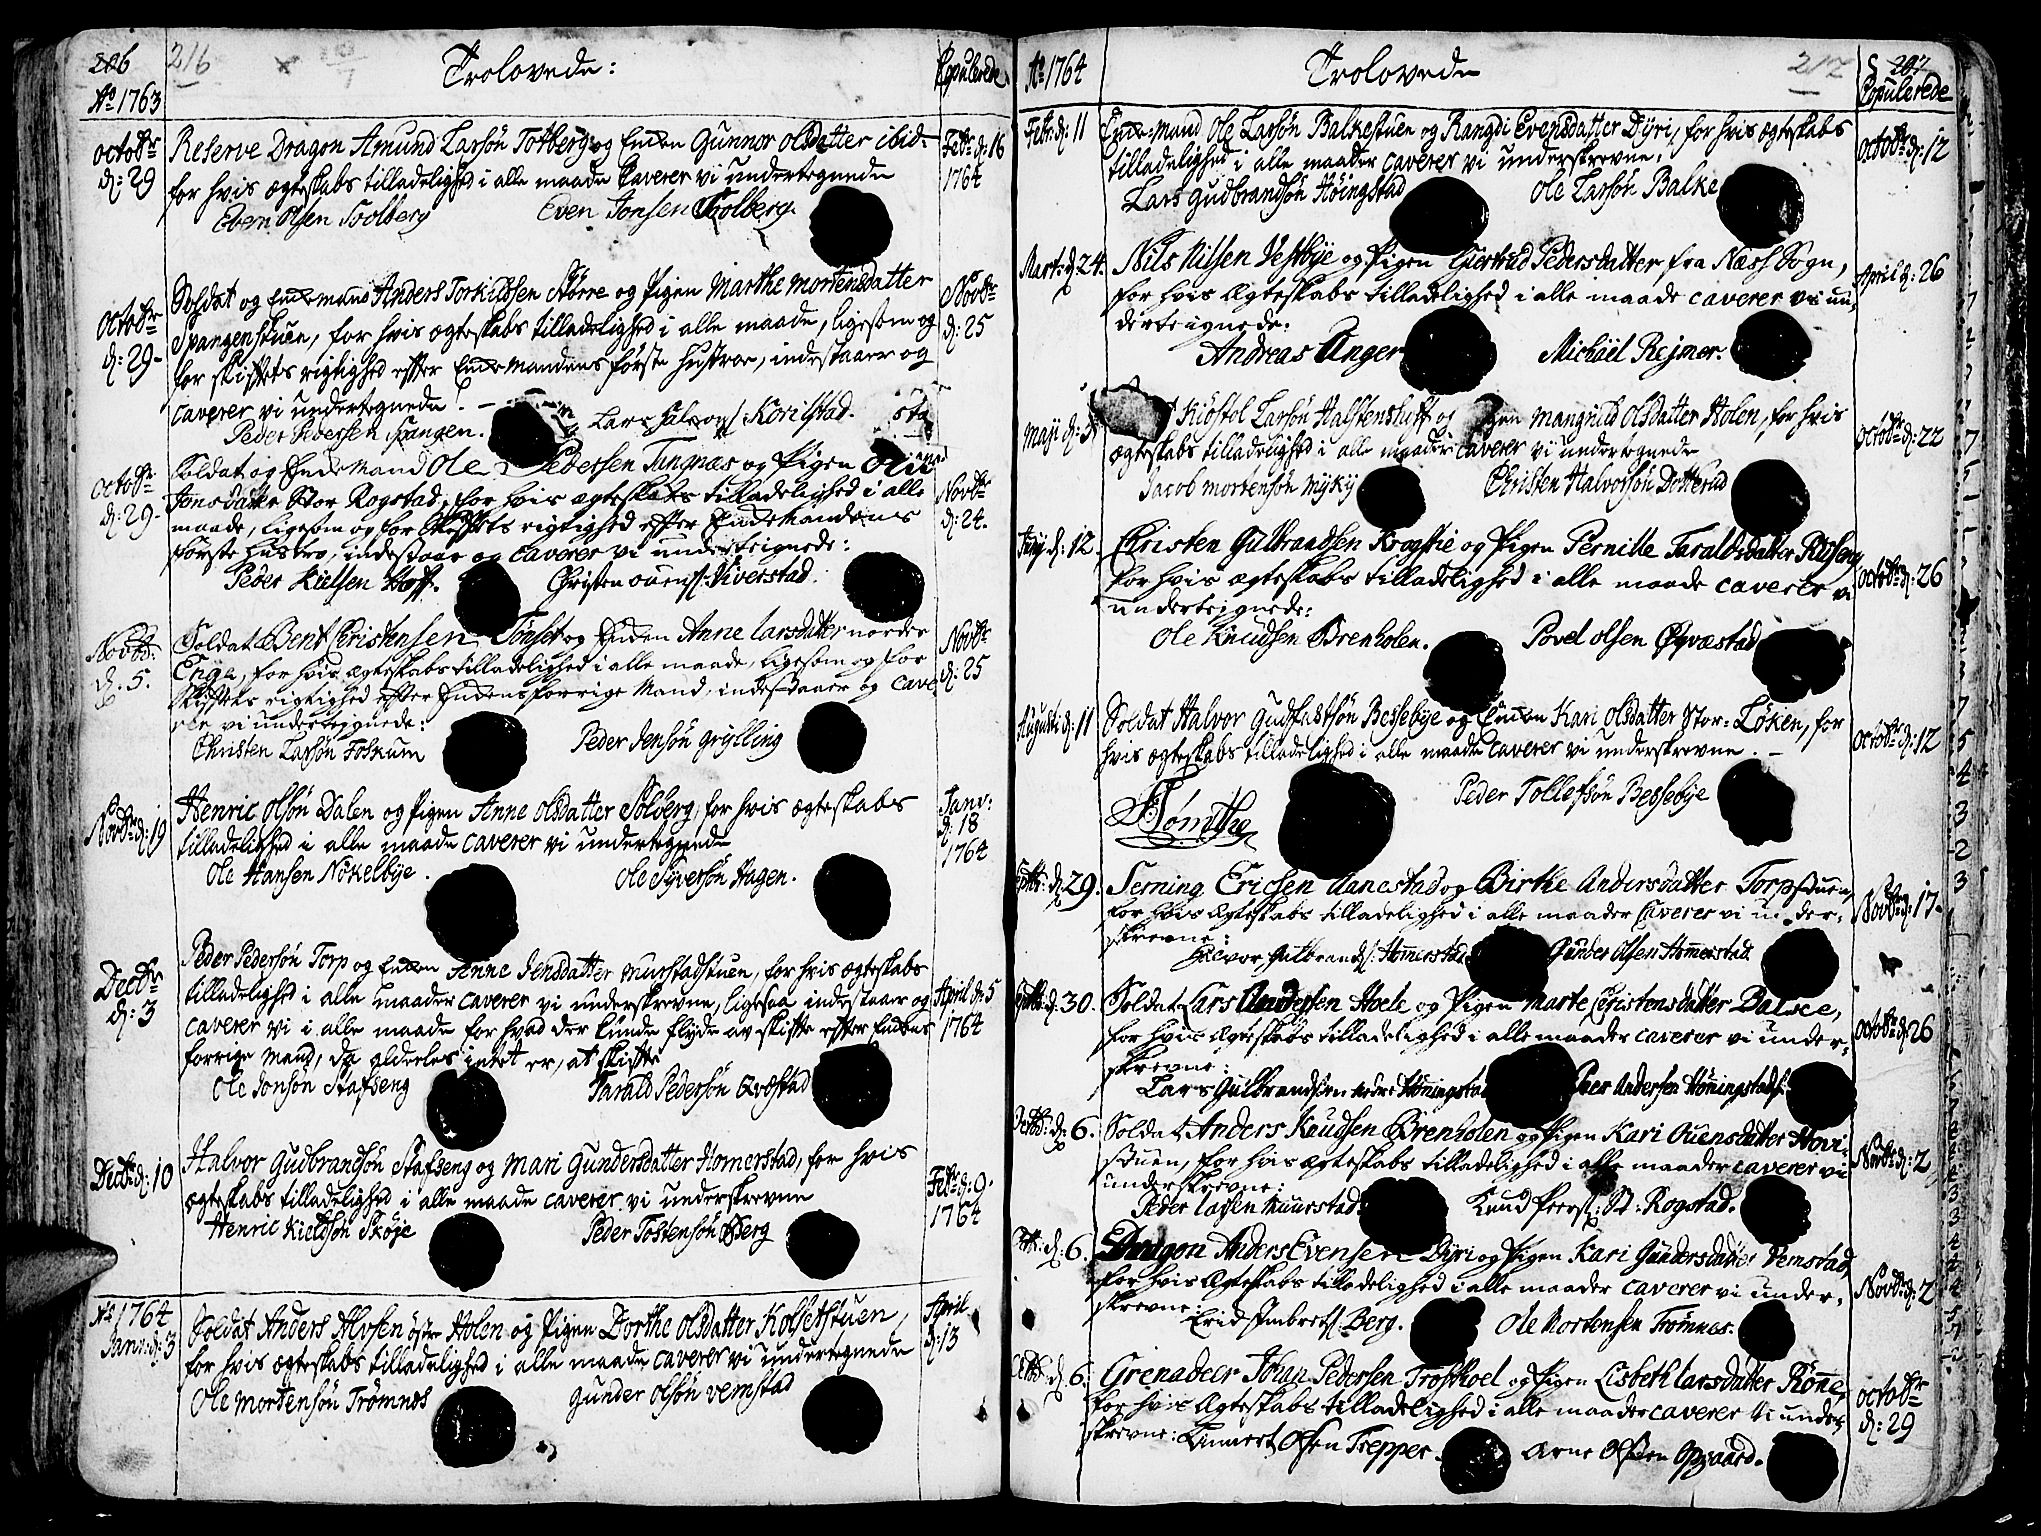 206 216 Trolovede: Copulerede
Ao 1763
octobr d: 29 Reserve Dragon Amund Larsøn Totberg og Enken Gunnor olsdatter ibid: Febr d: 16 1764
for hvis ægteskabs tilladelighed i alle maade caverer vi undertegnede
Even Olsen Soolberg Even Jonsen Soolberg.
octobr d: 29- Soldat og Enkemand Anders Torkildsen Større og Pigen Marthe mortensdatter Novbr d: 25
Spangenstuen, for hvis ægteskabs tilladelighed i alle maade, ligesom og
for skiftets rigtighed efter Enkemandens første Hustroe, indestaaer og
caverer vi undertegnede. -
Peder Pedersen Spangen. Lars Korilstad.
octobr d: 29- Soldat og Enkemand Ole Pedersen Tungnæs og Pigen Novbr d: 24.
Jonsdatter Stor Rogstad, for hvis ægteskabs tilladelighed i alle
maade, ligesom og for Skiftets rigtighed efter Enkemandens
første Hustro, indestaaer og caverer vi underteignede:
Peder Kielsen Hoff. Christen ouens: Niverstad.
Novbr: d: 5. Soldat Bent Christensen Tønset og Enken Anne larsdatter norder Novbr d: 25
Enge, for hvis ægteskabs tilladelighed i alle maade, ligesom og for
skiftets rigtighed efter Enkens forrige Mand, indestaaer og cave
rer vi undertegnede:
Christen Larsøn Foskum Peder Jensøn grylling
Novbr d: 19 Henric olsøn Dalen og Pigen Anne olsdatter Solberg, for hvis ægteskabs Janv: d: 18 1764
tilladelighed i alle maade caverer vi undertegnede
Ole Hansen Nökelbye. Ole Syversøn Hagen.
Decbr d: 3 Peder Pedersøn Torp og Enken Anne Jensdatter murstadstuen, for hvis ægteskabs April d: 5 1764
tilladelighed i alle maader caverer vi underskrevne, ligesaa indestaaer og
caverer vi i alle maade for hvad der kunde flyde av skifte efter Enkens
forrige mand, da alderles intet er, at skifte
Ole Jonsøn Stafseng Tarald Pedersøn Qvæstad
Decbr d: 10 Halvor Gudbrandsøn Stafseng og mari Gundersdatter Homerstad, for hvis Febr d: 9. 1764
ægteskabs tilladelighed i alle maade caverer vi underskrevne
Henric Kieldsøn Skøye Peder Tostensøn Berg
Ao 1764
Janv: d: 3 Soldat Anders Alvsen østre Holen og Pigen Dorthe olsdatter Kolsetstuen, April d: 13
for hvis ægteskabs tilladelighed i alle maade caverer vi undertegnede
Ole mortensøn Trømnes gunder olsøn vemstad
Ao 1764 Trolovede 217 207 Copulerede
Febr: d: 11 Enke-mand Ole Larsøn Balkestuen og Rangdi Evensdatter Dÿri, for hvis ægteskabs octobr d: 12
tilladelighed i alle maader caverer vi underskrevne.
Lars Gudbrandsøn Höingstad Ole Larsøn Balke
Mart: d: 24. Nils Nilsen Vestbye og Pigen Giertrud Pedersdatter fra Næss Sogn, April d: 26
for hvis Ægteskabs tilladelighed i alle maade caverer vi un-
derteignede:
Andreas Unger Michäel Rejmer.
Maji d: 31 Kiöstol Larsøn Halstenshuff og Pigen mangnild olsdatter Holen, for hvis octobr d: 22
ægteskabs tilladelighed i alle maader caverer vi undertegnede
Jacob mortensøn myhy Christen Halvorsøn Dotterud
Junÿ d: 12. Christen Gulbrandsen Krogstie og Pigen Pernille Taraldsdatter octobr d: 26
for hvis ægteskabs tilladelighed i alle maade caverer vi
underteignede:
Ole Knudsen Brenholen. Povel olsen Qvæstad
Augusti d: 11 Soldat Halvor Gudfastsøn Bessebye og Enken Kari Olsdatter Stor-Löken, for octobr d: 12
hvis ægteskabs tilladelighed i alle maade caverer vi underskrevne. -
Peder Tollefsøn Bessebye
Septbr: d: 29. Jerning Ericsen Aanestad og Birthe Andersdatter Torpstuen, Novbr d: 17-
for hvis Ægteskabs tilladelighed i alle maader Caverer vi under-
skrevne:
Halvor Gulbrands: Homerstad Gunder Olsen Homerstad.
Septbr: d: 30. Soldat Lars Andersen Hoele og Pigen Marte Christensdatter Dalsee, octobr d: 26
for hvis Ægteskabs tilladelighed i alle maader caverer vi under-
skrevne:
Lars Gulbrandsøn nedre Höningstad Peer Andersen Höningstads:
Octob: d: 6. Soldat Anders Knudsen Brenholen og Pigen Kari Ouensdatter Hovi- Novbr d: 2
stuen, for hvis Ægteskabs tilladelighed i alle maader caverer vi
underskrevne:
Peder Larsen Muurstad Knud Peers: St: Rogstad.
Octb: d: 6. Dragon Anders Evensen Dÿri og Pigen Kari Gundersdatter Vemstad, Novbr d: 2
for hvis Ægteskabs tilladelighed i alle maader caverer vi under-
skrevne:
Erid Imbrets: Berg. Ole Mortensen Trömnes.
Octob: d. 6. Grenadeer Johan Pedersen Troskoel og Pigen Lisbeth Larsdatter Rönne, octobr d: 29
for hvis Ægteskabs tilladelighed i alle maader caverer vi under-
skrevne: Linnert Olsen Trepper. Arne Olsen Opgaard.